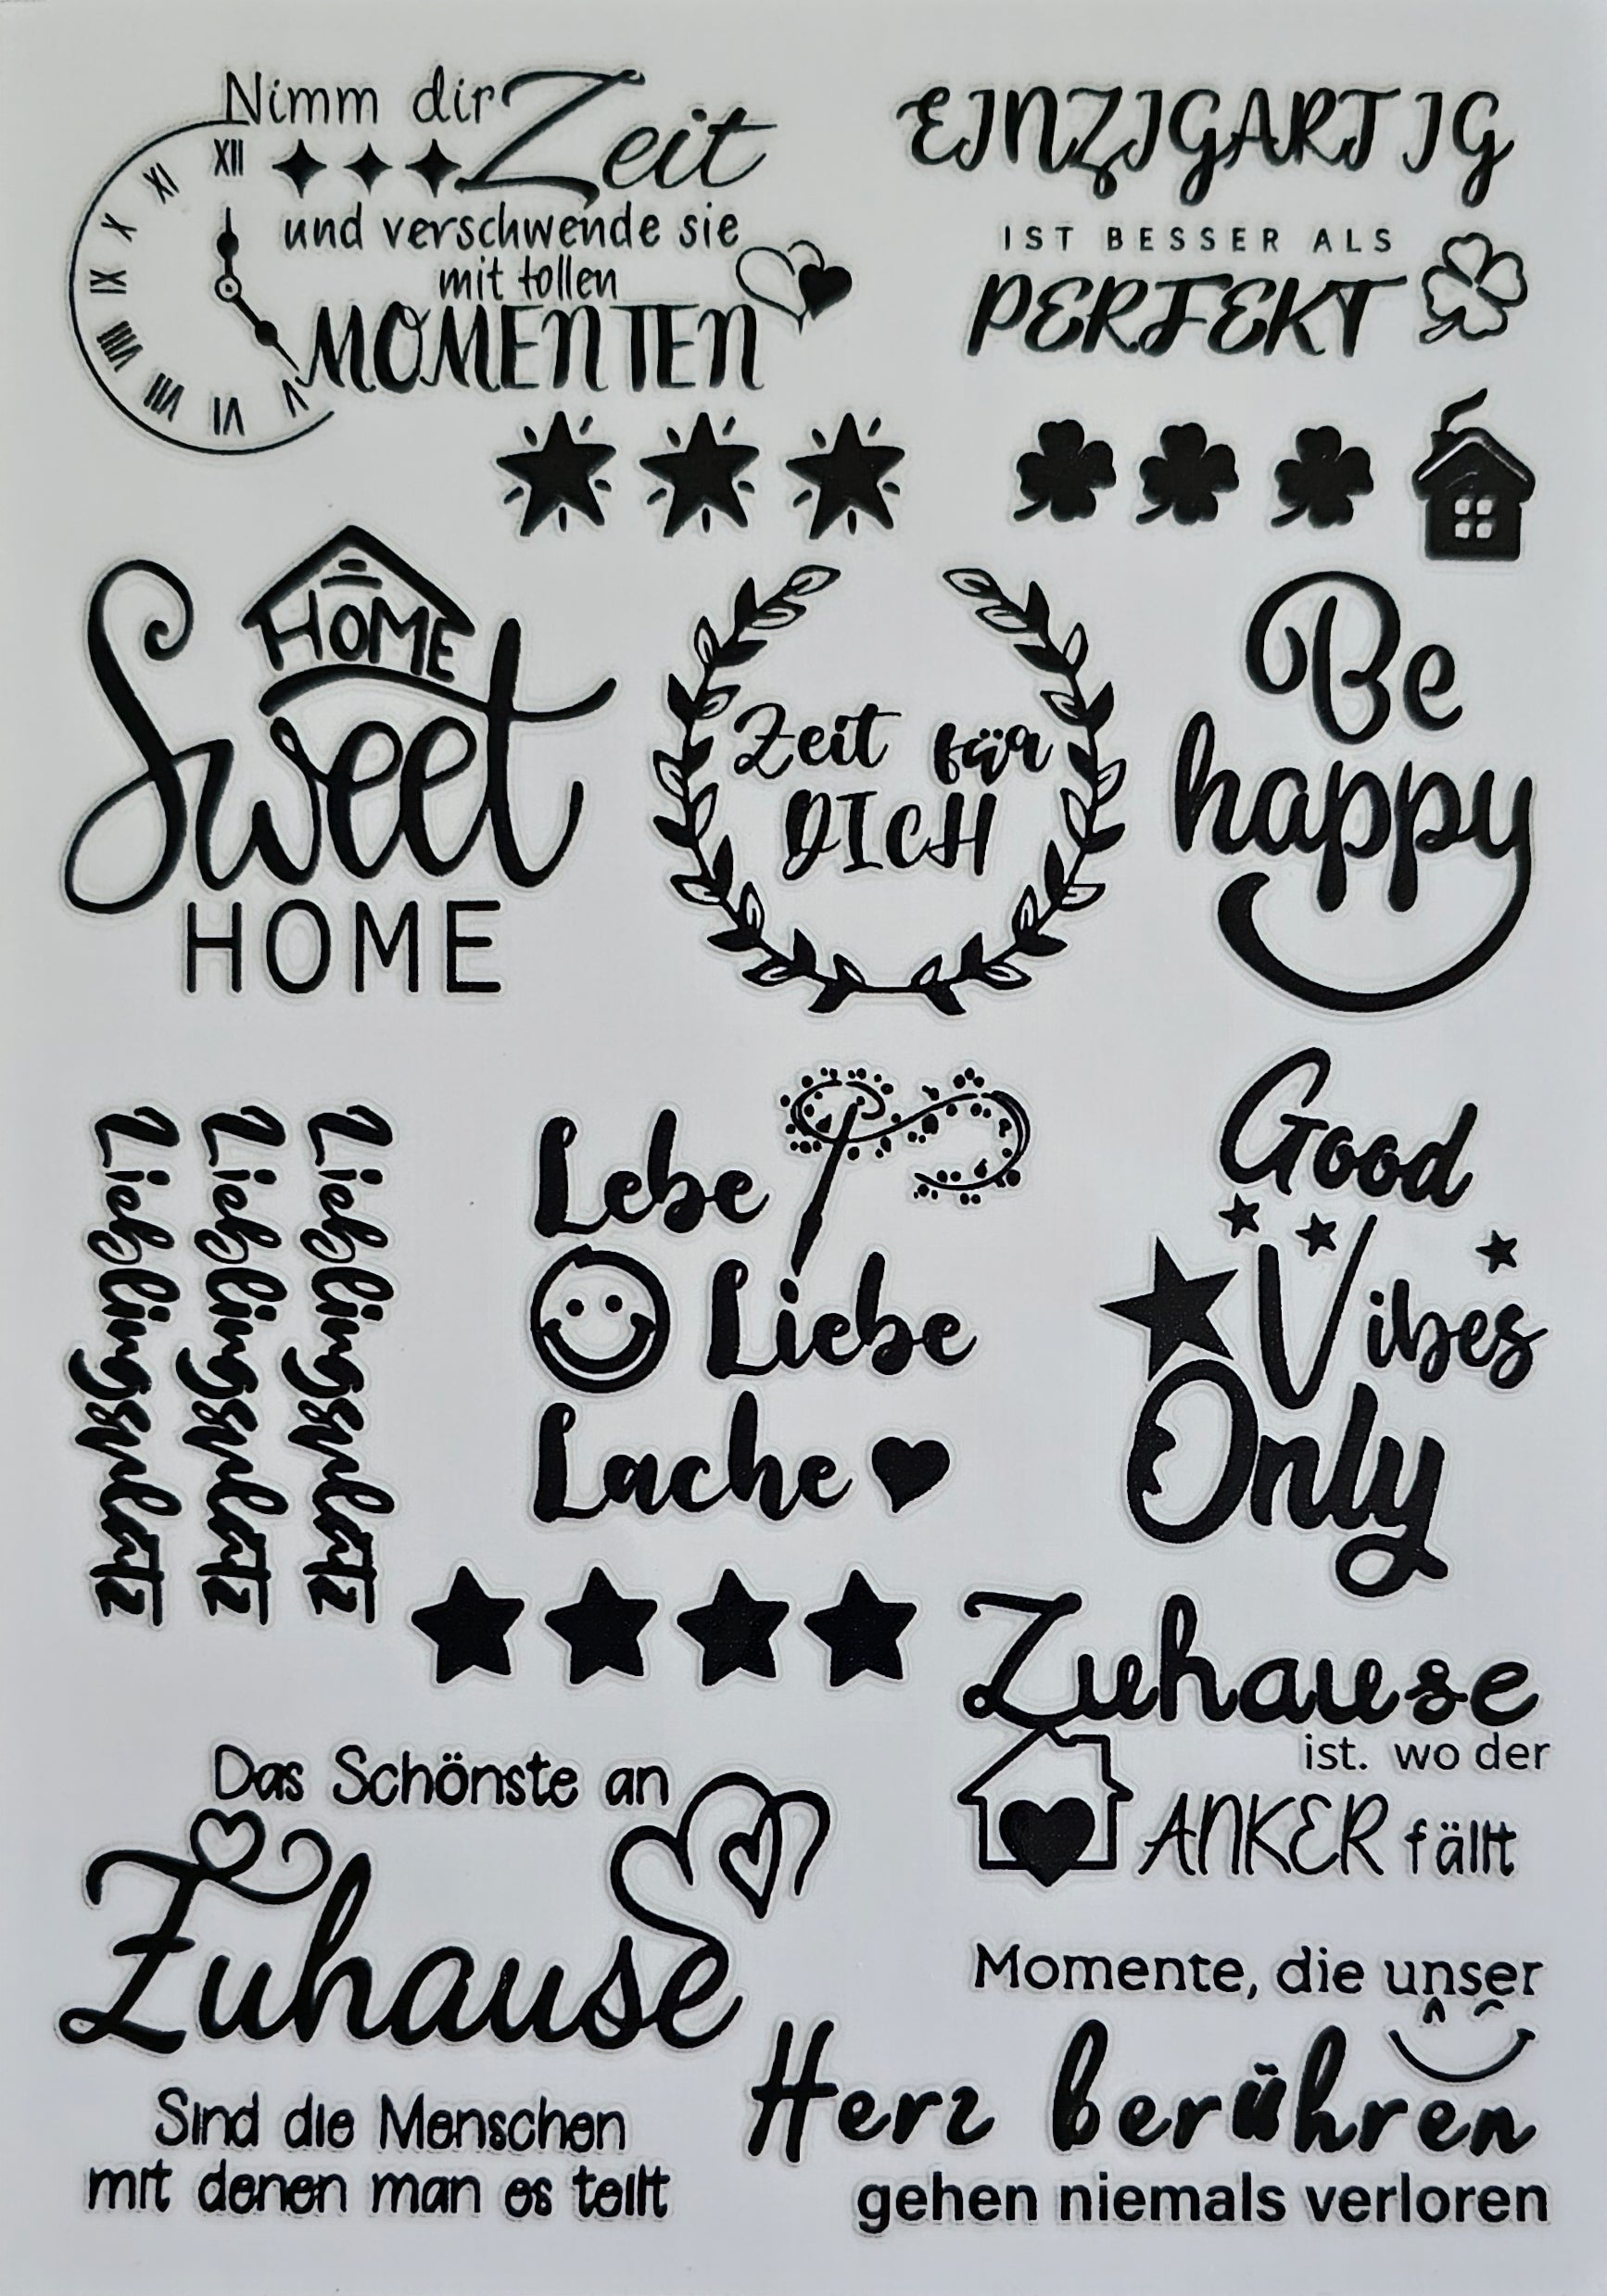 Nimm dir Zeit
und verschwende sie
mit tollen
MOMENTEN
XII
XI
X
IX
VIII
VII
VI
V
EINZIGARTIG
IST BESSER ALS
PERFEKT
HOME
Sweet
HOME
Zeit für
DICH
Be
happy
Lieblingsplatz
Lieblingsplatz
Lieblingsplatz
Lebe
Liebe
Lache
Good
Vibes
Only
Zuhause
ist. wo der
ANKER fällt
Das Schönste an
Zuhause
Sind die Menschen
mit denen man es teilt
Momente, die unser
Herz berühren
gehen niemals verloren